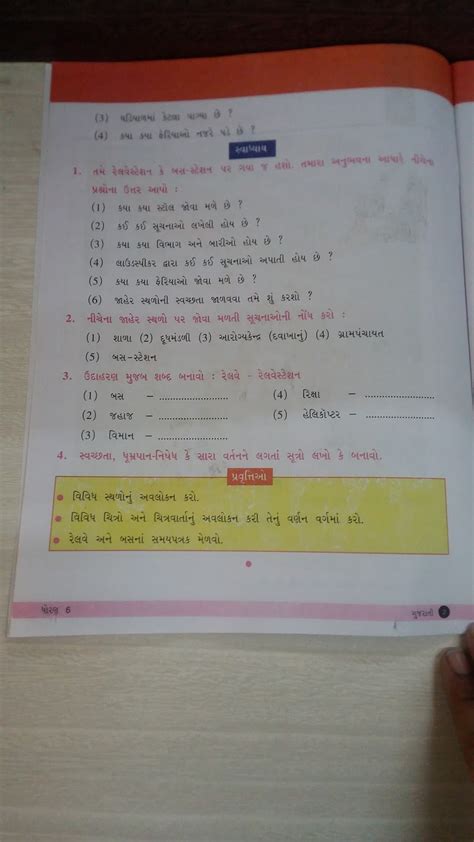 (3) ઘડિયાળમાં કેટલા વાગ્યા છે ?
(4) કયા કયા ફેરિયાઓ નજરે પડે છે ?
સ્વાધ્યાય
1. તમે રેલવેસ્ટેશન કે બસ-સ્ટેશન પર ગયા જ હશો. તમારા અનુભવના આધારે નીચેના
પ્રશ્નોના ઉત્તર આપો :
(1) કયા કયા સ્ટૉલ જોવા મળે છે ?
(2) કઈ કઈ સૂચનાઓ લખેલી હોય છે ?
(3) કયા કયા વિભાગ અને બારીઓ હોય છે ?
(4) લાઉડસ્પીકર દ્વારા કઈ કઈ સૂચનાઓ અપાતી હોય છે ?
(5) કયા કયા ફેરિયાઓ જોવા મળે છે ?
(6) જાહેર સ્થળોની સ્વચ્છતા જાળવવા તમે શું કરશો ?
2. નીચેના જાહેર સ્થળો પર જોવા મળતી સૂચનાઓની નોંધ કરો :
(1) શાળા (2) દૂધમંડળી (3) આરોગ્યકેન્દ્ર (દવાખાનું) (4) ગ્રામપંચાયત
(5) બસ-સ્ટેશન
3. ઉદાહરણ મુજબ શબ્દ બનાવો : રેલવે - રેલવેસ્ટેશન
(1) બસ – ................. (4) રિક્ષા – .................
(2) જહાજ – ................. (5) હેલિકોપ્ટર – .................
(3) વિમાન – .................
4. સ્વચ્છતા, ધૂમ્રપાન-નિષેધ કે સારા વર્તનને લગતાં સૂત્રો લખો કે બનાવો.
પ્રવૃત્તિઓ
• વિવિધ સ્થળોનું અવલોકન કરો.
• વિવિધ ચિત્રો અને ચિત્રવાર્તાનું અવલોકન કરી તેનું વર્ણન વર્ગમાં કરો.
• રેલવે અને બસનાં સમયપત્રક મેળવો.
ધોરણ 6
ગુજરાતી